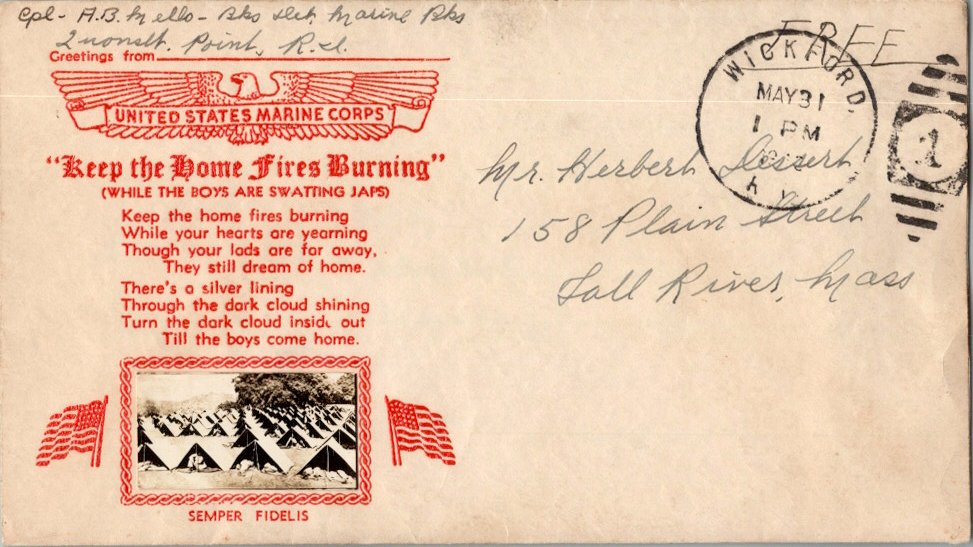 Cpl- A.B. Mello- Bks Det. Marine Bks
Quonslt. Point, R.I.
Greetings from
UNITED STATES MARINE CORPS
"Keep the Home Fires Burning"
(WHILE THE BOYS ARE SWATTING JAPS)
Keep the home fires burning
While your hearts are yearning
Though your lads are far away,
They still dream of home.
There's a silver lining
Through the dark cloud shining
Turn the dark cloud inside out
Till the boys come home.
SEMPER FIDELIS
FREE
WICKFORD,
MAY 31
1 PM
1
Mr. Herbert
158 Plain Street
Fall River, Mass